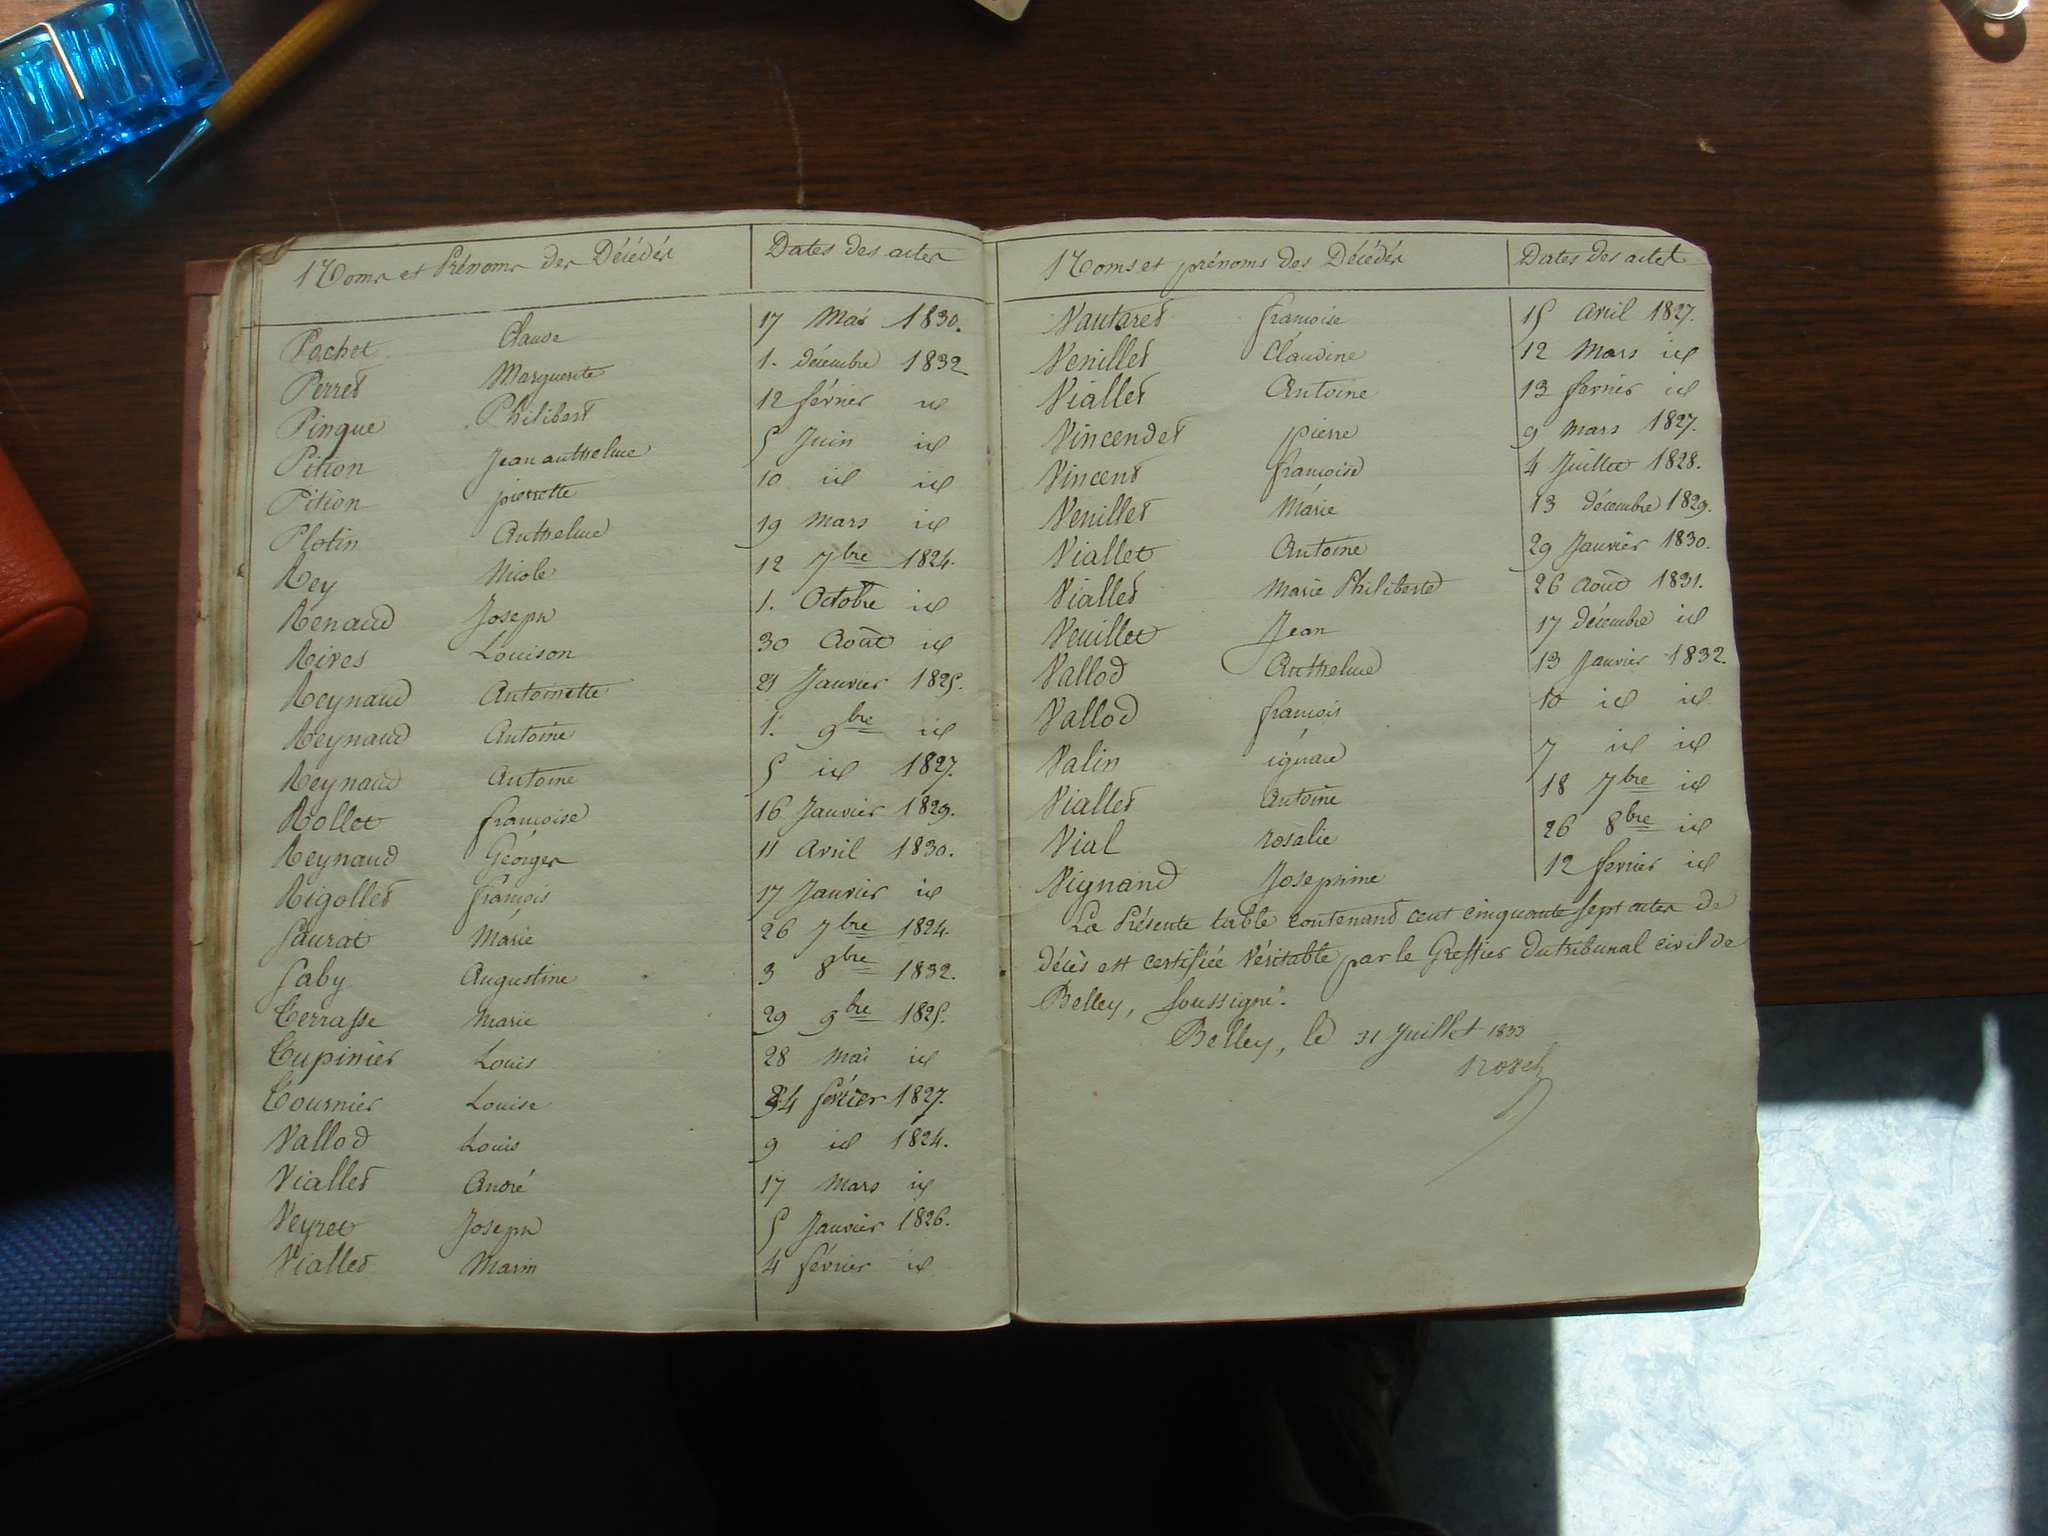 Noms et Prénoms des Décédés Dates des actes
Pochet Claude 17 Mai 1830.
Perret Marguerite 1. décembre 1832
Pingue Philibert 12 février id
Pition Jean anthelme 5 Juin id
Pition pierrette 10 id id
Plotin Anthelme 19 Mars id
Rey Nicole 12 7bre 1824.
Renaud Joseph 1. Octobre id
Rives Louison 30 Août id
Reynaud Antoinette 21 Janvier 1825.
Reynaud Antoine 1. 9bre id
Reynaud Antoine 5 id 1827.
Rollet francoise 16 Janvier 1829.
Reynaud Géorges 11 Avril 1830.
Rigollet françois 17 Janvier id
Saurat Marie 26 7bre 1824.
Saby Augustine 3 8bre 1832.
Terrasse Marie 29 9bre 1825.
Tupinier Louis 28 Mai id
Tournier Louise 24 février 1827.
Vallod Louis 9 id 1824.
Viallet André 17 Mars id
Veyret Joseph 5 Janvier 1826.
Viallet Marin 4 février id
Noms et prénoms des Décédés Dates des actes
Vautaret francoise 15 Avril 1827.
Venillet Claudine 12 Mars id
Viallet Antoine 13 fevrier id
Vincendet pierre 9 Mars 1827.
Vincent francoise 4 Juillet 1828.
Venillet Marie 13 décembre 1829.
Viallet Antoine 29 Janvier 1830.
Viallet Marie Philiberte 26 Août 1831.
Veuillet Jean 17 décembre id
Vallod Anthelme 13 Janvier 1832.
Vallod francois 10 id id
Valin ignace 7 id id
Viallet Antoine 18 7bre id
Vial rosalie 26 8bre id
Vignand Josephine 12 fevrier id
La Présente table contenant cent cinquante sept actes de
décès est certifiée Véritable par le Greffier du tribunal civil de
Belley, soussigné.
Belley, le 31 Juillet 1833